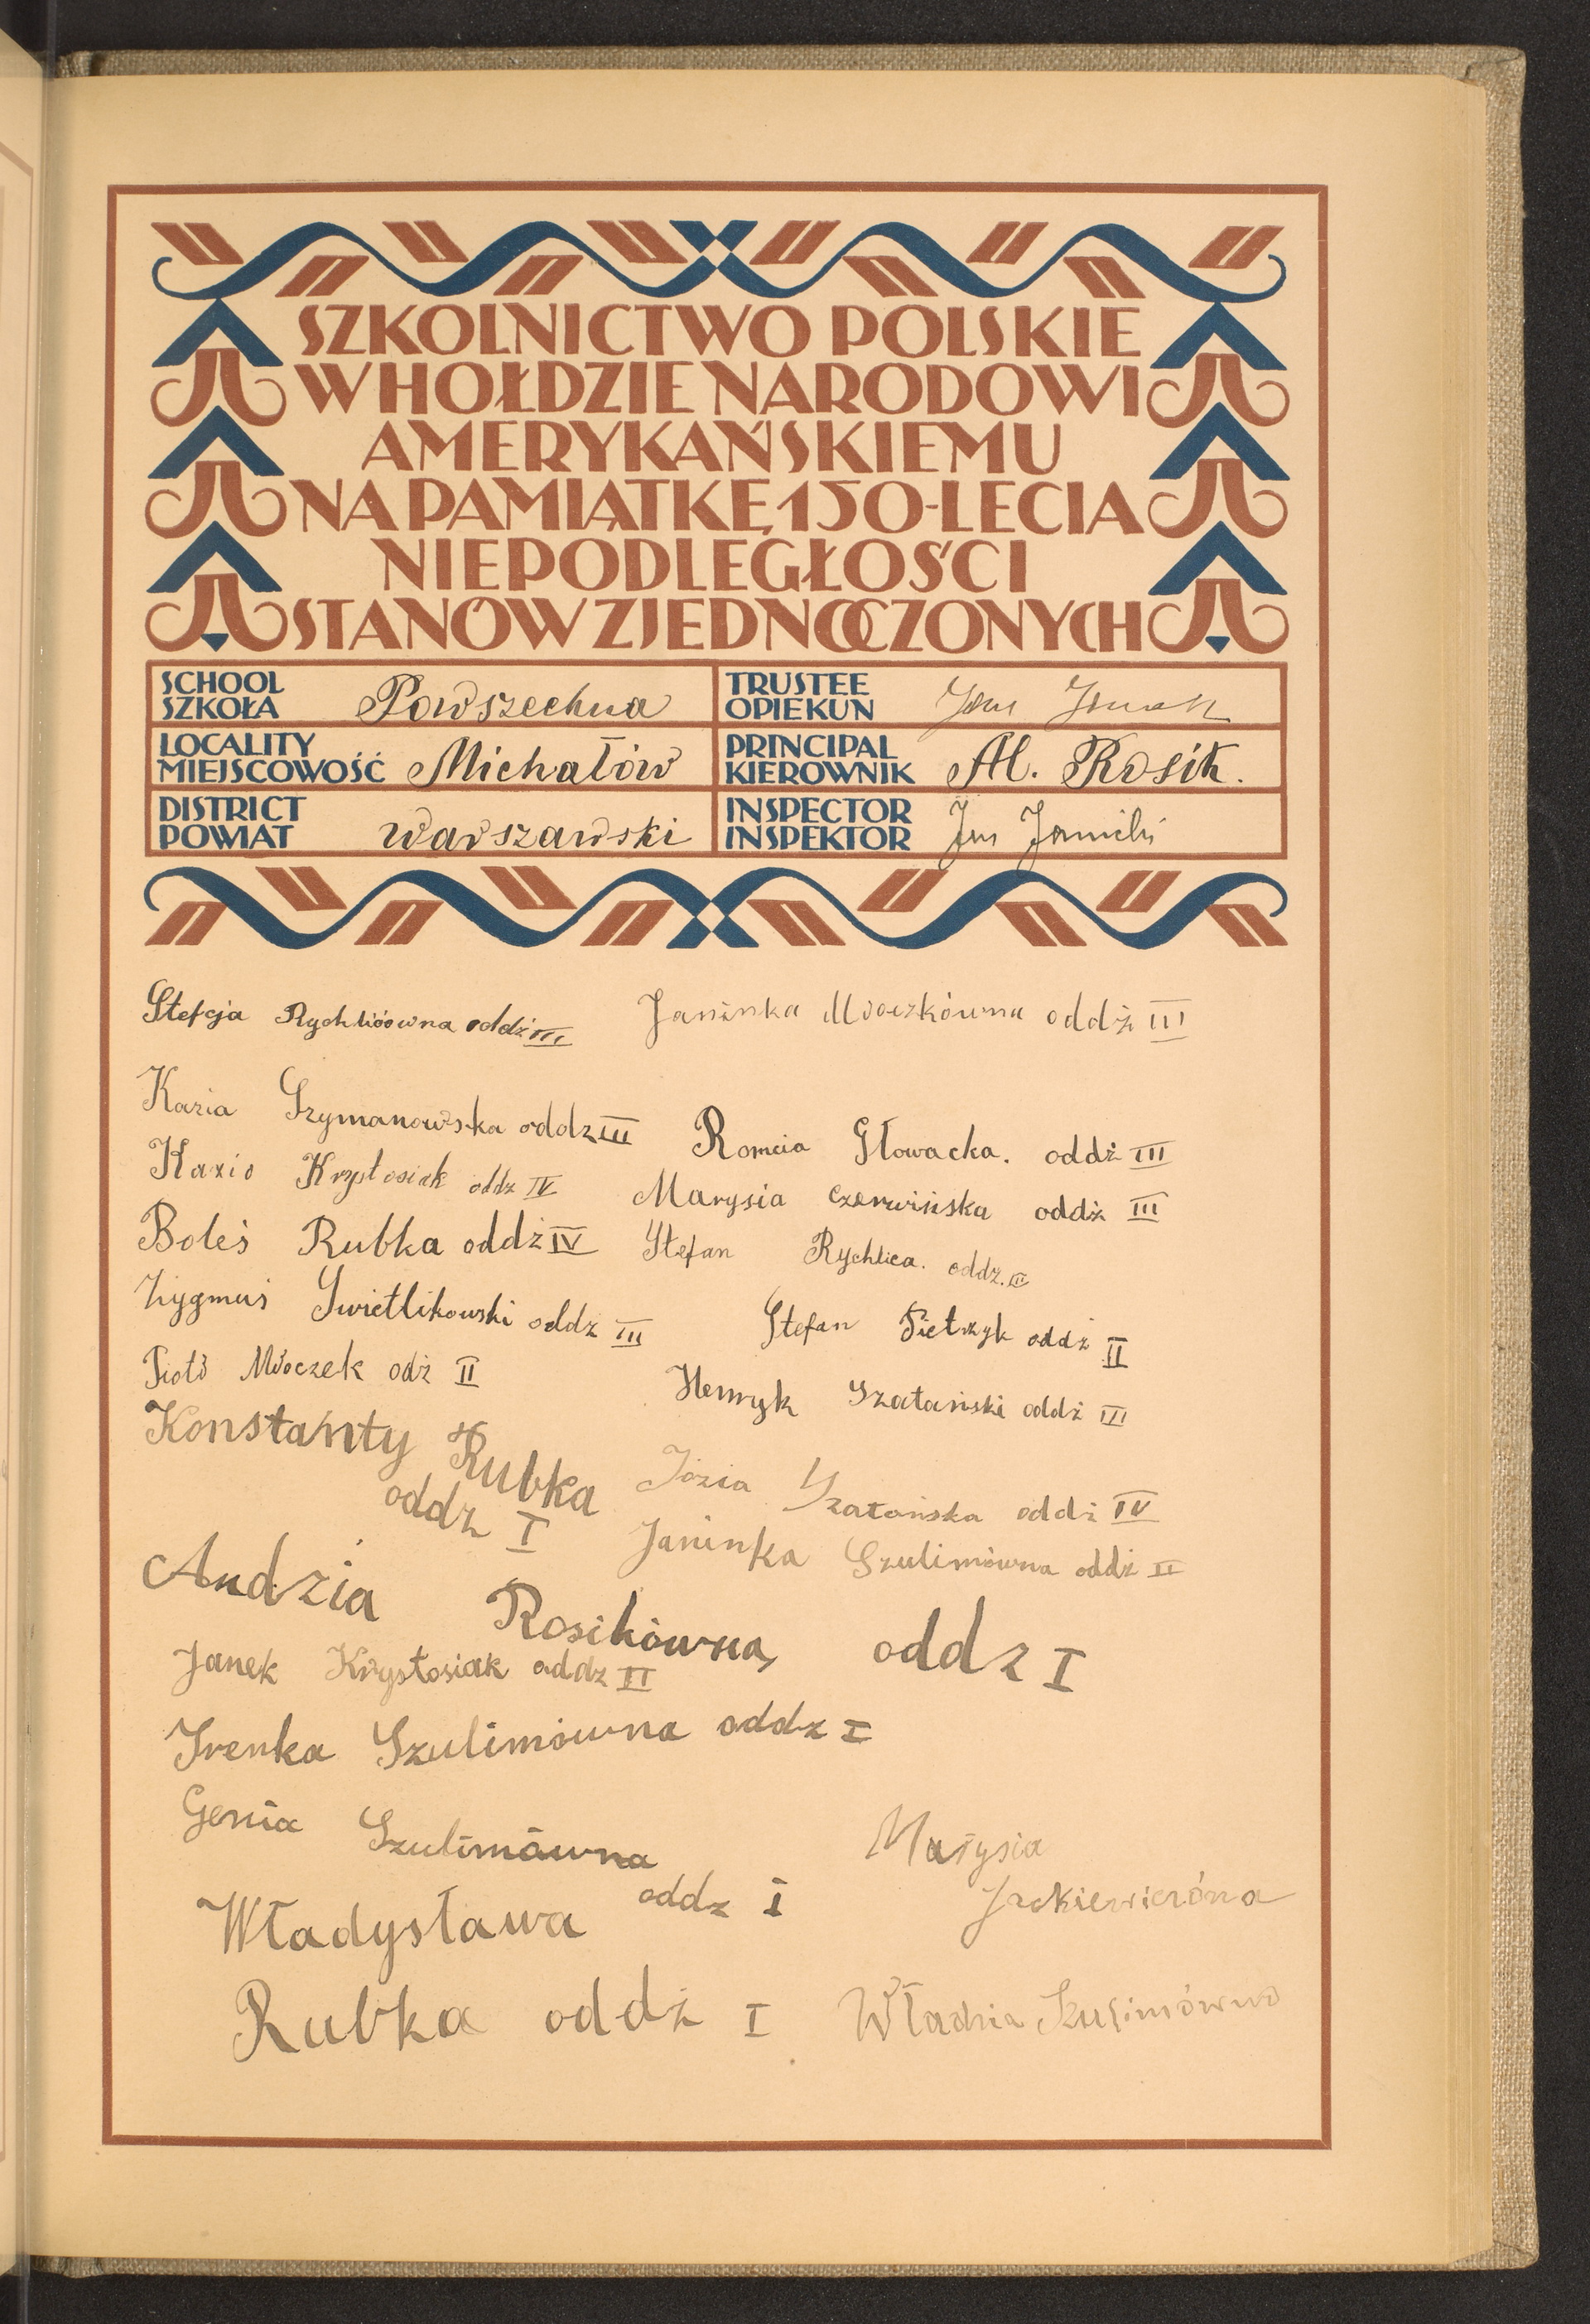 SZKOLNICTWO POLSKIE
W HOŁDZIE NARODOWI
AMERYKAŃSKIEMU
NA PAMIĄTKĘ 150-LECIA
NIEPODLEGŁOŚCI
STANÓW ZJEDNOCZONYCH
SCHOOL
SZKOŁA Powszechna
TRUSTEE
OPIEKUN Jan
LOCALITY
MIEJSCOWOŚĆ Michałów
PRINCIPAL
KIEROWNIK Al. Rosik.
DISTRICT
POWIAT warszawski
INSPECTOR
INSPEKTOR Jan
Stefcja oddż III
Janinka Mroczkówna oddż III
Kazia Szymanowska oddz III
Romcia Głowacka. oddż III
Kazio Krystosiak oddz IV
Marysia Czerwińska oddż III
Boleś Rubka oddż IV
Stefan Rychlica. oddz. III
Zygmuś Swietlikowski oddz III
Stefan Pietrzyk oddż II
Piotr Mroczek odż II
Henryk Szatański oddż III
Konstanty Rubka
oddz I
Józia Szatańska oddż IV
Janinka Szulimówna oddż II
Andzia Rosikówna, oddz I
Janek Krystosiak oddz II
Irenka Szulimówna oddz I
Genia Szulimówna
oddz I
Marysia
Władysława
Rubka oddż I
Władzia Szulimówna